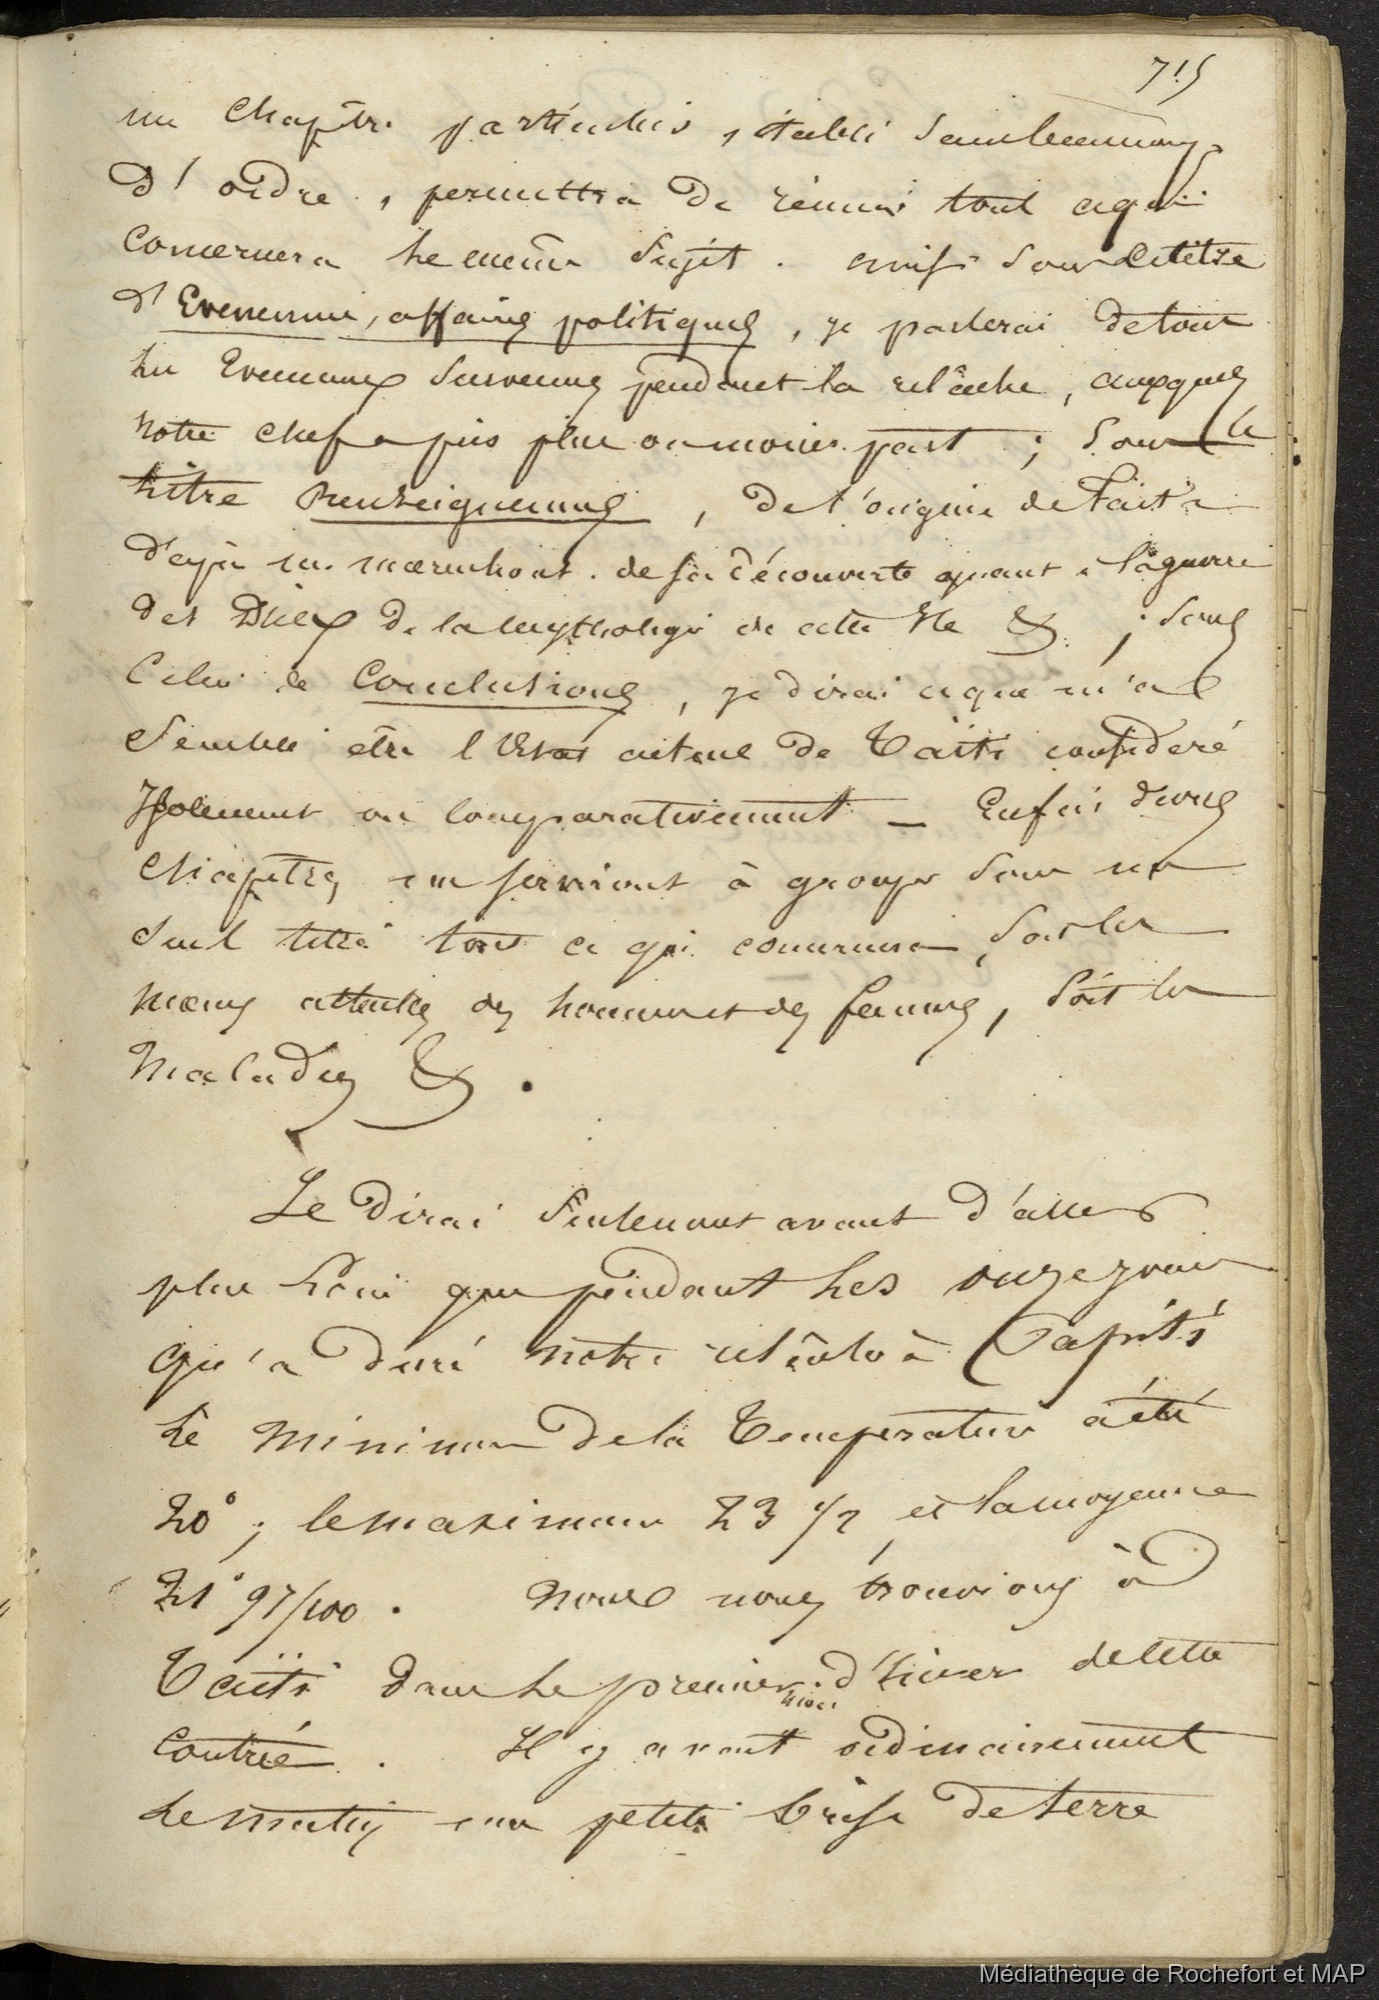 715
un chapitre particulier, établi
d'ordre, permettra de réunir tout ce qui
concernera le même sujet. ainsi sous le titre
d'Evenemens, affaires politiques, je parlerai de tous
les Evenemens survenus pendant la relâche, auxquels
notre chef a pris plus ou moins part ; sous le
titre Renseignemens, de l'origine de Taïti
déjà de sa découverte quant à la guerre
des Dieux de la mythologie de cette Ile & ; sous
Celui de Conclusions, je dirai ce que m'a
semblé être l'Etat actuel de Taïti consideré
Isolement ou comparativement _ Enfin divers
chapitres me serviront à grouper sous un
seul titre tout ce qui concernera, soit les
moeurs actuelles des hommes et des femmes, soit les
Maladies & .
Je dirai seulement avant d'aller
plus loin que pendant les onze jours
qu'a duré notre relâche à Papiti
Le minimum de la Temperature a été
20° ; le maximum 23 1/2, et la moyenne
21° 97/100 . Nous nous trouvions à
Taïti dans le premier d'hiver de cette
mois
Contrée . Il y avait ordinairement
Le matin une petite brise de terre
Médiathèque de Rochefort et MAP